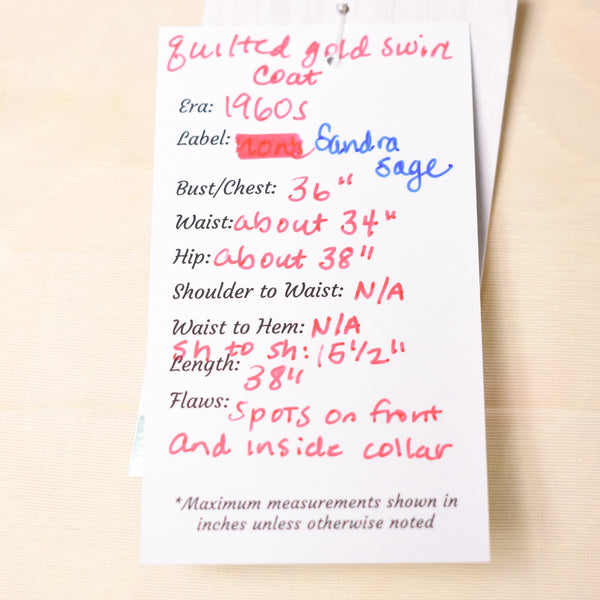 quilted gold swirl
coat
Era: 1960s
Label: Sandra
Sage
Bust/Chest: 36"
Waist: about 34"
Hip: about 38"
Shoulder to Waist: N/A
Waist to Hem: N/A
Sh to Sh: 15 1/2"
Length: 38"
Flaws: Spots on front
and inside collar
*Maximum measurements shown in
inches unless otherwise noted